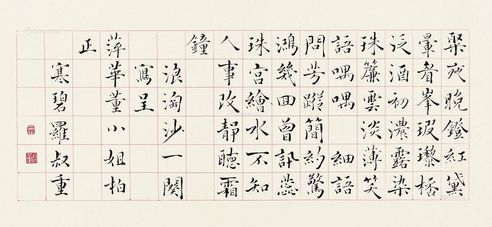 晚鐙紅黛
暈眉峯玻瓈桮
泛酒初濃露染
珠簾雲淡薄笑
語喁喁 細語
問芳蹤驚
鴻幾回曾訊蕊
珠宮繪水不知
人事改靜聽霜
鐘
浪淘沙一闋
寫呈
萍華董小姐柏
正
寒碧羅叔重